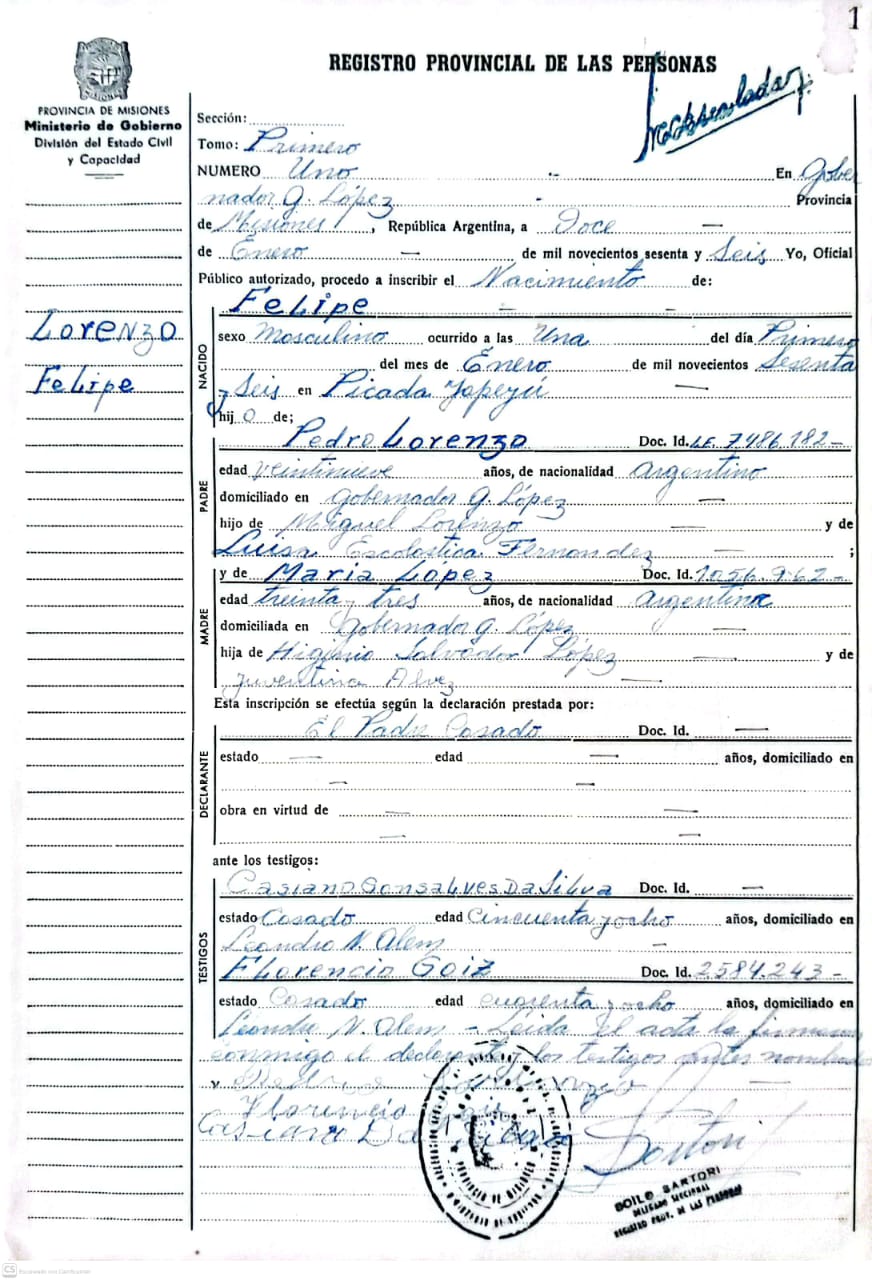 1
REGISTRO PROVINCIAL DE LAS PERSONAS
PROVINCIA DE MISIONES
Ministerio de Gobierno
División del Estado Civil
y Capacidad
Sección:
Tomo: Primero
NUMERO Uno En Gober
nador G. López Provincia
de Misiones, República Argentina, a Doce
de Enero de mil novecientos sesenta y Seis Yo, Oficial
Público autorizado, procedo a inscribir el Nacimiento de:
Lorenzo
Felipe
NACIDO
Felipe
sexo Masculino ocurrido a las Una del día Primero
del mes de Enero de mil novecientos Sesenta
y Seis en Picada Yapeyú
hijo de;
PADRE
Pedro Lorenzo Doc. Id. LE 7486.182-
edad veintinueve años, de nacionalidad Argentino
domiciliado en Gobernador G. López
hijo de Miguel Lorenzo y de
Luisa Escolastica Fernandez ;
MADRE
y de Maria López Doc. Id. 1056.962-
edad treinta y tres años, de nacionalidad Argentina
domiciliada en Gobernador G. López
hija de Higinio Salvador López y de
Juventina Alvez
Esta inscripción se efectúa según la declaración prestada por:
DECLARANTE
El Padre Casado Doc. Id. —
estado — edad — años, domiciliado en
— —
obra en virtud de — —
— —
ante los testigos:
TESTIGOS
Casiano Gonsalves Da Silva Doc. Id. —
estado Casado edad Cincuenta y ocho años, domiciliado en
Leandro N. Alem —
Florencio Goiz Doc. Id. 2584.243-
estado Casado edad cuarenta y ocho años, domiciliado en
Leandro N. Alem - Leida el acta la firman
conmigo el declarante y los testigos antes nombrados
Florencio
Casiano Da Silva
Sartori
PROVINCIA DE MISIONES
BOILO SARTORI
DELEGADO SECCIONAL
REGISTRO PROV. DE LAS PERSONAS
CS Escaneado con CamScanner